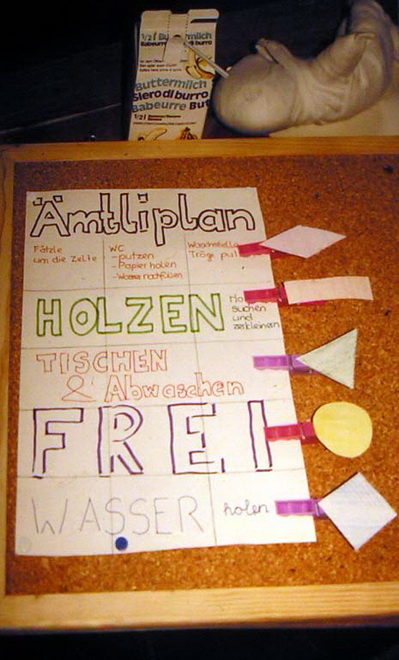 1/2 l Buttermilch
Babeurre
di burro
Buttermilch
Siero di burro
Babeurre But
1/2 l
Ämtliplan
Fätzle
um die Zelte
WC
- putzen
- Papier holen
- Wasser nachfüllen
Tröge
HOLZEN
suchen
und
zerkleinern
TISCHEN
& Abwaschen
FREI
WASSER holen